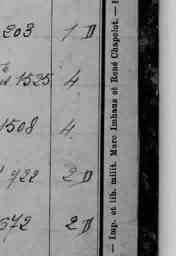 203 1 D
1525 4
1508 4
922 2 D
672 2 D
— Imp. et lib. milit. Marc Imhaus et René Chapelot. —